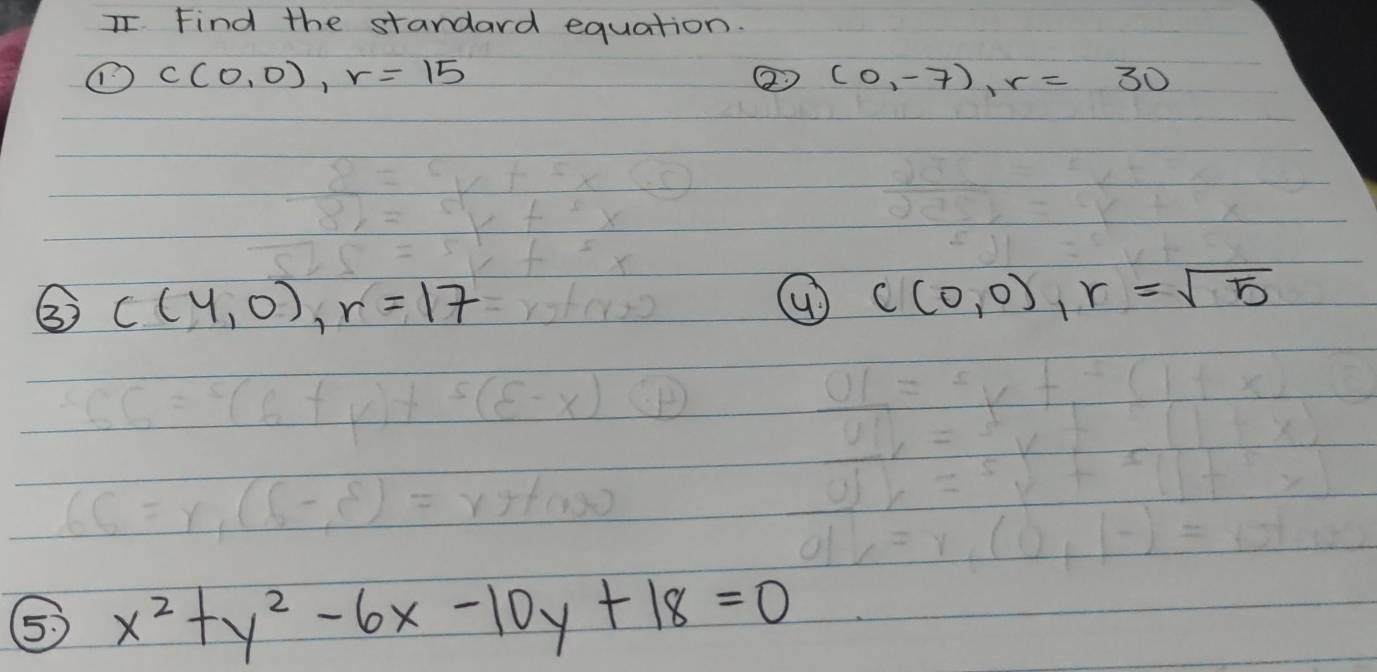 II. Find the standard equation.
① C(0,0), r = 15
② (0,-7), r = 30
③ C(4,0), r = 17
④ C(0,0), r = √5
⑤ x² + y² - 6x - 10y + 18 = 0